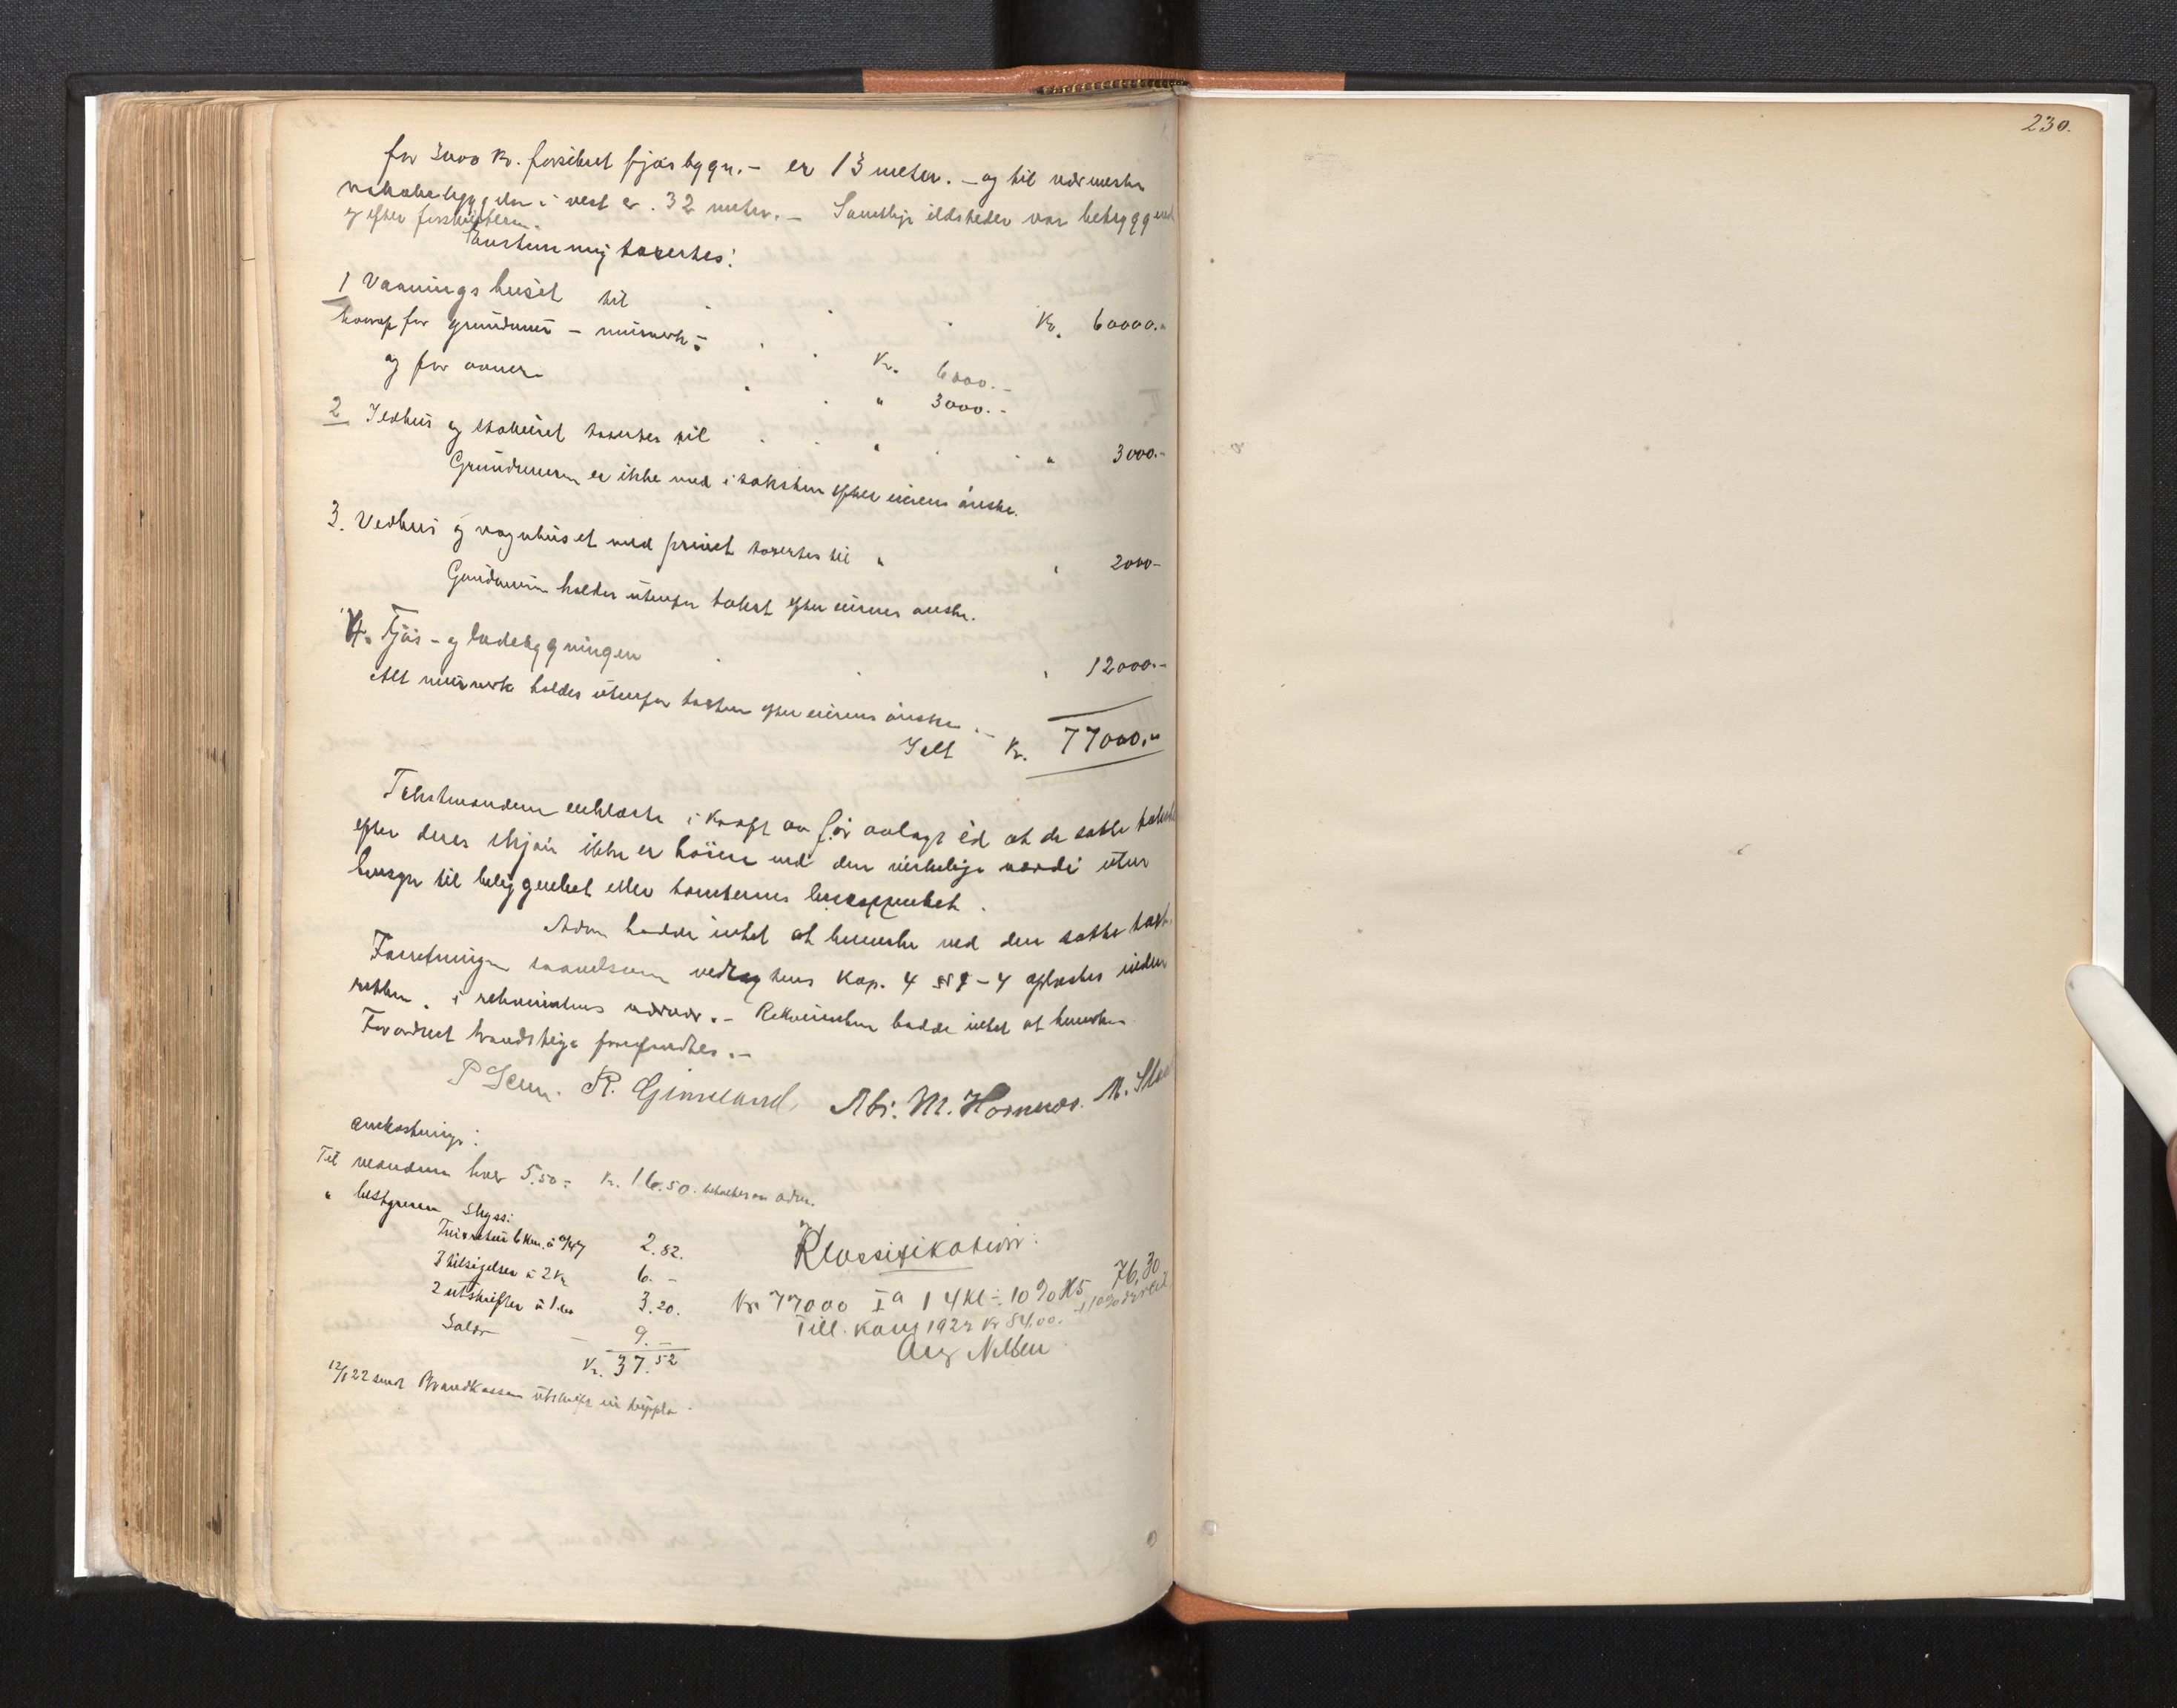 for 3000 kr. forsikret fjøsbygn. – er 13 meter. – og til nærmeste
nabobebyggelse i vest er 32 meter. – Samtlige ildsteder var betryggende
og efter forskriftern.
taxertes:
1 Vaaningshuset til . . . Kr. 60000.-
herav for grundmur – murverk – . . Kr. 6000.-
og for ovner . . " 3000.-
2 Ildhus og stabburet taxertes til . . . " 3000.-
Grundmuren er ikke med i taksten efter eierens ønske.
3. Vedhus og vognhuset med privet taxertes til " 2000-
Grundmuren holdes utenfor takst efter eierens ønske.
4. Fjøs- og ladebygningen . . " 12000.-
Alt murverk holdes utenfor taksten efter eierens ønske. –
Ialt Kr. 77000.-
Takstmændene erklærte i kraft av før avlagt ed at de satte takster
efter deres skjøn ikke er høiere end den virkelige værdi uten
hensyn til beliggenhet eller tomternes beskaffenhet.
hadde intet at bemerke ved den satte takst.
Forretningen saavelsom vedtægtens Kap. 4 § 1-4 oplæstes inden
retten i rekvirentens nærvær. – Rekvirenten hadde intet at bemerke
Forøvrig brandstige forefandtes. –
P Sem. R. Gimeland, Abr. M. Hornnes. M.
Omkostninger:
Til mændene hver 5.50 = Kr. 16.50. betaltes av
" bestyreren Skyss:
Tur retur 6 km. à 0/47 2.82.
3 tilsigelser à 2 Kr 6. –
2 utskrifter à 1.60 3.20.
Salær – 9. –
Kr. 37.52
12/1 22 sendt Brandkassen utskrift in duplo.
Klassifikation:
Kr. 77000 I a 14 Kl ÷ 10% H5 76,30
Till. kony 1922 kr 84.00.
Aug Nelben
230.